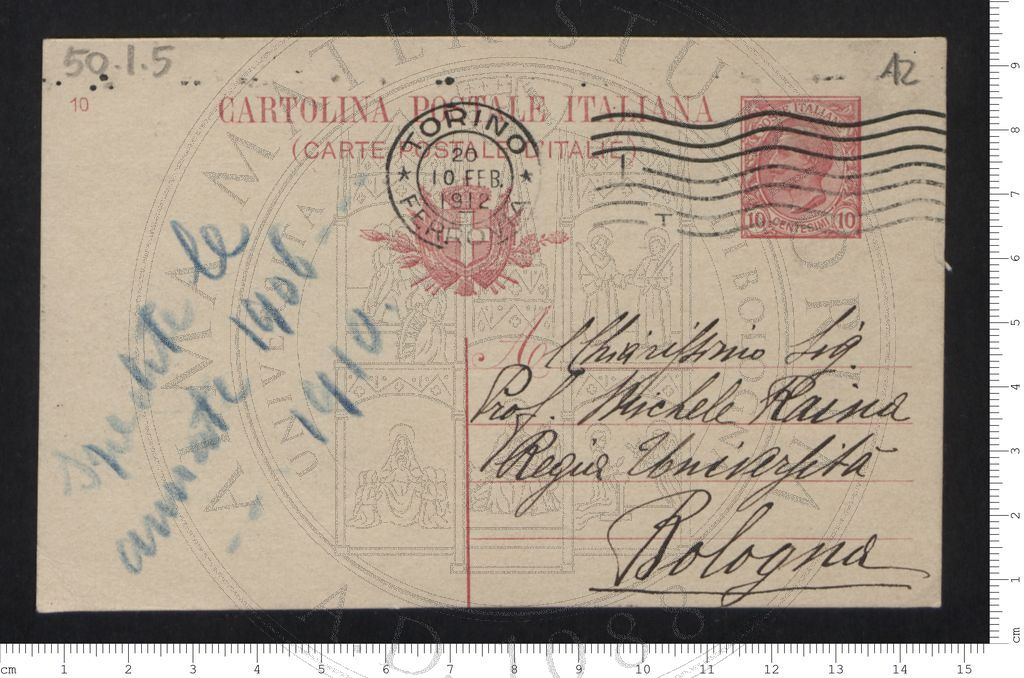 50.1.5
12
10
CARTOLINA POSTALE ITALIANA
(CARTE POSTALE D'ITALIE)
TORINO
20
10 FEB.
1912
FERROVIA
POSTE ITALIANE
10 CENTESIMI 10
spedite le
annate 1906-
-1910.-
Al Chiarissimo Sig.
Prof. Michele Raina
Regia Università
Bologna
ALMA MATER STUDIORUM
A.D. 1088
cm 1 2 3 4 5 6 7 8 9 10 11 12 13 14 15
cm 1 2 3 4 5 6 7 8 9